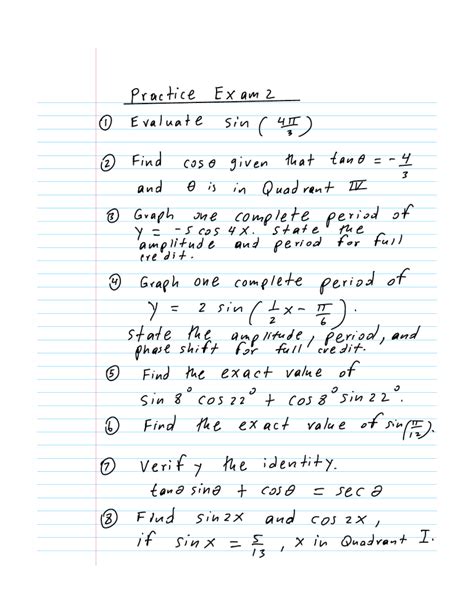 Practice Exam 2
① Evaluate sin ( 4π/3 )
② Find cosθ given that tanθ = - 4/3
and θ is in Quadrant IV
③ Graph one complete period of
y = -5 cos 4x. State the
amplitude and period for full
credit.
④ Graph one complete period of
y = 2 sin ( 1/2 x - π/6 ).
State the amplitude, period, and
phase shift for full credit.
⑤ Find the exact value of
sin 8° cos 22° + cos 8° sin 22°.
⑥ Find the exact value of sin(π/12).
⑦ Verify the identity.
tanθ sinθ + cosθ = sec θ
⑧ Find sin2x and cos 2x,
if sin x = 5/13, x in Quadrant I.